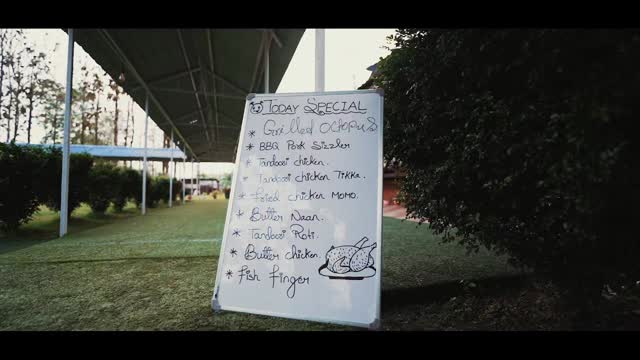 Today Special
* Grilled octopus
* BBQ Pork Sizzler
* Tandoori chicken.
* Tandoori chicken Tikka.
* Fried chicken MOMO.
* Butter Naan.
* Tandoori Roti.
* Butter chicken.
* Fish finger